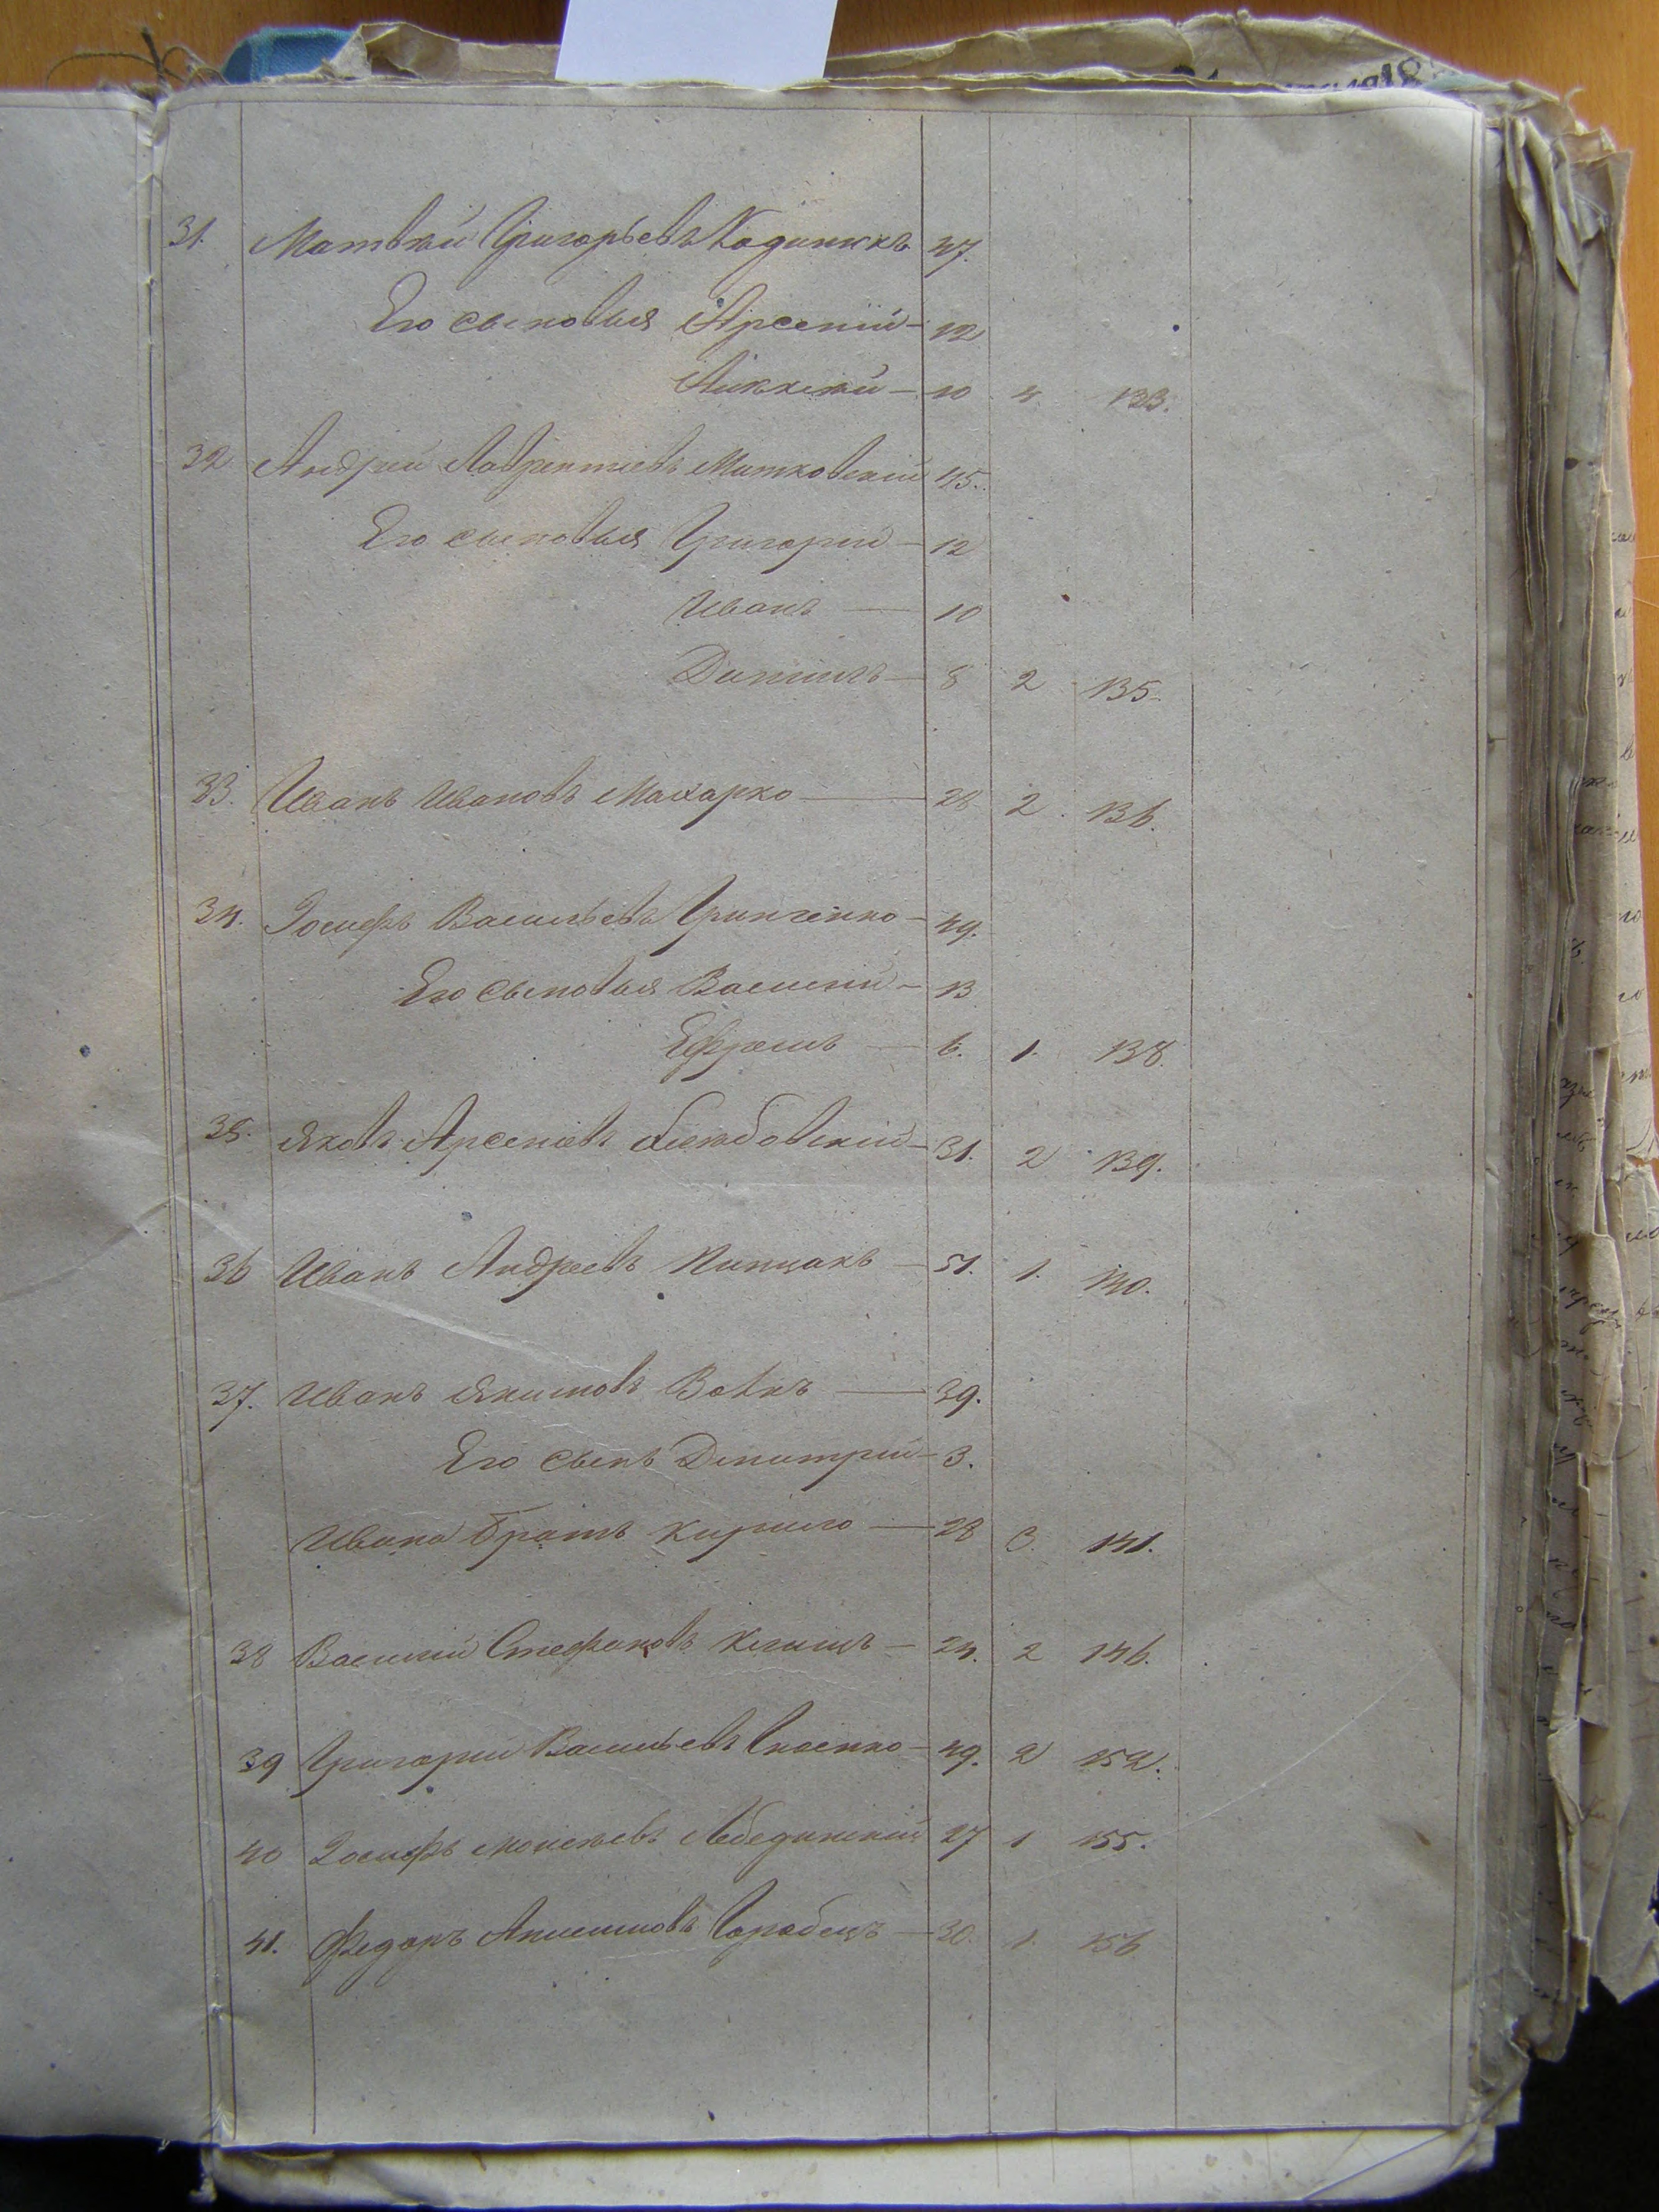 31. Матвѣй Григорьевъ Ходиникъ 47.
Его сыновья Арсеній - 12
Алексѣй - 10 4 133.
32 Андрей Лаврентіевъ Матковскій 45.
Его сыновья Григорій - 12
Иванъ — 10
Данилъ - 8 2 135.
33. Иванъ Ивановъ Махарко — 28 2. 136.
34. Іосифъ Васильевъ Гринченко - 49.
Его сыновья Василій - 13
Ефремъ — 6. 1. 138.
35. Яковъ Арсеніевъ - 31. 2 139.
36 Иванъ Андреевъ - 51. 1. 140.
37. Иванъ Якимовъ Вовкъ — 39.
Его сынъ Дмитрій - 3.
Ивана братъ Кирило — 28 3. 141.
38 Василій Стефановъ Климъ - 24. 2 146.
39 Григорій Васильевъ - 49. 2 152.
40 Іосифъ Моисѣевъ Лебединскій 27 1 155.
41. Федоръ Анисимовъ Горобецъ — 30. 1. 156